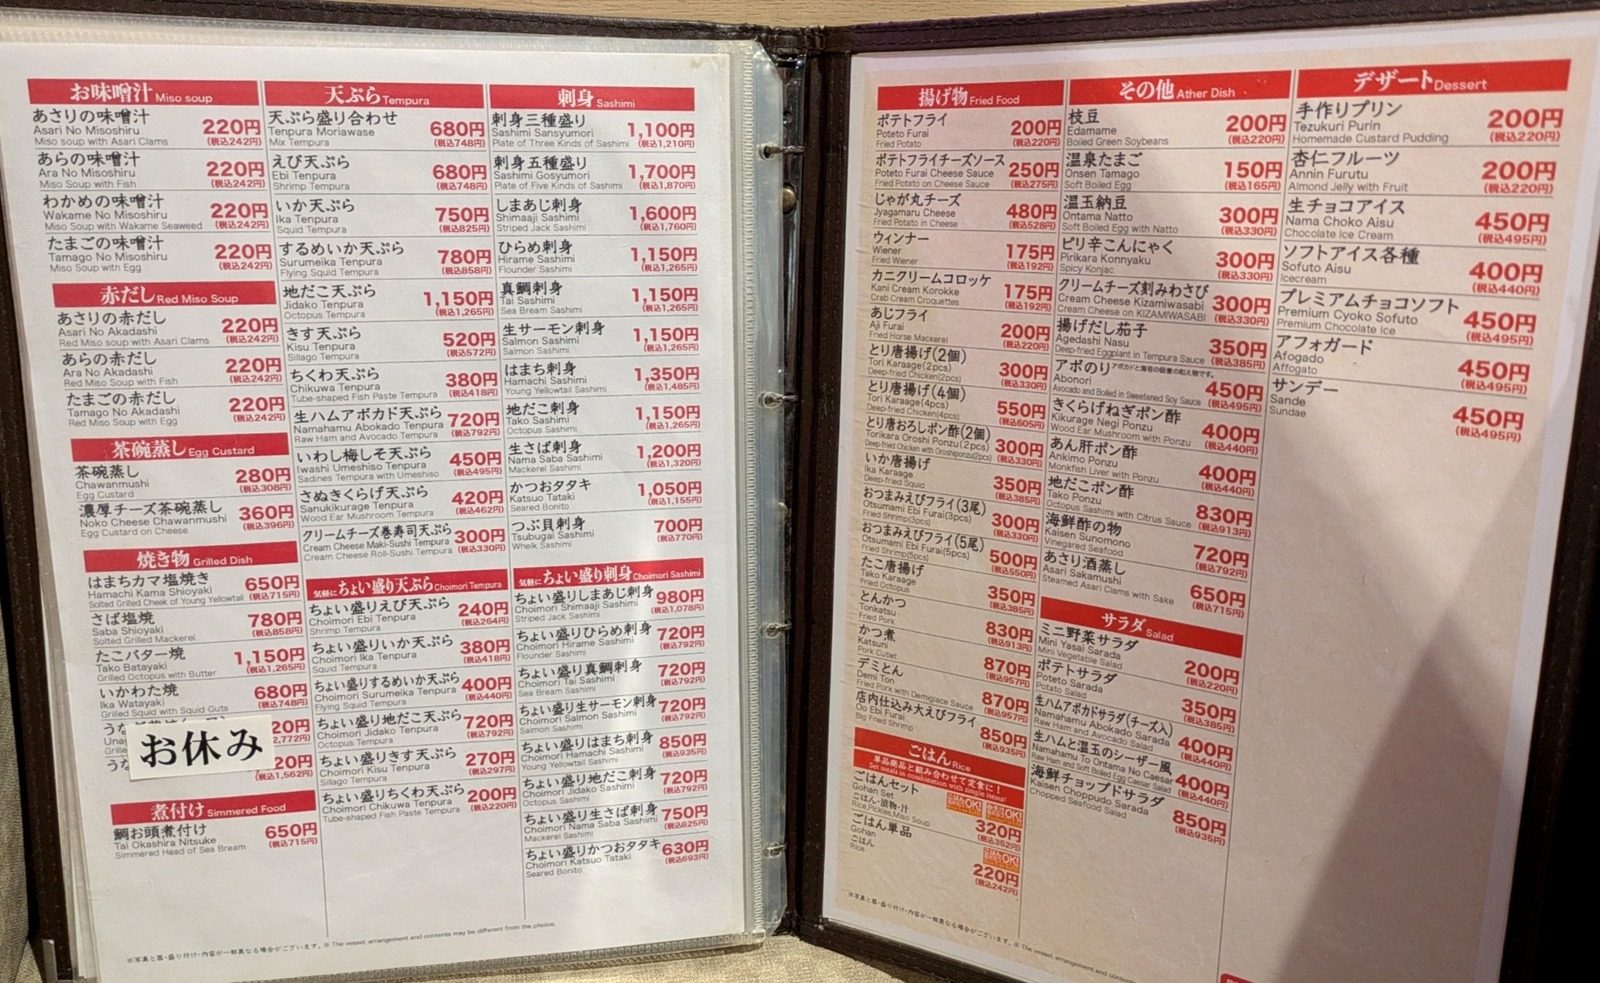 お味噌汁 Miso soup
あさりの味噌汁
Asari No Misoshiru
Miso soup with Asari Clams
220円
(税込242円)
あらの味噌汁
Ara No Misoshiru
Miso Soup with Fish
220円
(税込242円)
わかめの味噌汁
Wakame No Misoshiru
Miso Soup with Wakame Seaweed
220円
(税込242円)
たまごの味噌汁
Tamago No Misoshiru
Miso Soup with Egg
220円
(税込242円)
赤だし Red Miso Soup
あさりの赤だし
Asari No Akadashi
Red Miso soup with Asari Clams
220円
(税込242円)
あらの赤だし
Ara No Akadashi
Red Miso Soup with Fish
220円
(税込242円)
たまごの赤だし
Tamago No Akadashi
Red Miso Soup with Egg
220円
(税込242円)
茶碗蒸し Egg Custard
茶碗蒸し
Chawanmushi
Egg Custard
280円
(税込308円)
濃厚チーズ茶碗蒸し
Noko Cheese Chawanmushi
Egg Custard on Cheese
360円
(税込396円)
焼き物 Grilled Dish
はまちカマ塩焼き
Hamachi Kama Shioyaki
Solted Grilled Cheek of Young Yellowtail
650円
(税込715円)
さば塩焼
Saba Shioyaki
Solted Grilled Mackerel
780円
(税込858円)
たこバター焼
Tako Batayaki
Grilled Octopus with Butter
1,150円
(税込1,265円)
いかわた焼
Ika Watayaki
Grilled Squid with Squid Guts
680円
(税込748円)
うな
Una
Grille
20円
2,772円)
お休み
うな
20円
(税込1,562円)
煮付け Simmered Food
鯛お頭煮付け
Tai Okashira Nitsuke
Simmered Head of Sea Bream
650円
(税込715円)
天ぷら Tempura
天ぷら盛り合わせ
Tenpura Moriawase
Mix Tempura
680円
(税込748円)
えび天ぷら
Ebi Tenpura
Shrimp Tempura
680円
(税込748円)
いか天ぷら
Ika Tenpura
Squid Tempura
750円
(税込825円)
するめいか天ぷら
Surumeika Tenpura
Flying Squid Tempura
780円
(税込858円)
地だこ天ぷら
Jidako Tenpura
Octopus Tempura
1,150円
(税込1,265円)
きす天ぷら
Kisu Tenpura
Sillago Tempura
520円
(税込572円)
ちくわ天ぷら
Chikuwa Tenpura
Tube-shaped Fish Paste Tempura
380円
(税込418円)
生ハムアボカド天ぷら
Namahamu Abokado Tenpura
Raw Ham and Avocado Tempura
720円
(税込792円)
いわし梅しそ天ぷら
Iwashi Umeshiso Tenpura
Sadines Tempura with Umeshiso
450円
(税込495円)
さぬきくらげ天ぷら
Sanukikurage Tenpura
Wood Ear Mushroom Tempura
420円
(税込462円)
クリームチーズ巻寿司天ぷら
Cream Cheese Maki-Sushi Tempura
Cream Cheese Roll-Sushi Tempura
300円
(税込330円)
気軽にちょい盛り天ぷら Choimori Tempura
ちょい盛りえび天ぷら
Choimori Ebi Tenpura
Shrimp Tempura
240円
(税込264円)
ちょい盛りいか天ぷら
Choimori Ika Tenpura
Squid Tempura
380円
(税込418円)
ちょい盛りするめいか天ぷら
Choimori Surumeika Tenpura
Flying Squid Tempura
400円
(税込440円)
ちょい盛り地だこ天ぷら
Choimori Jidako Tenpura
Octopus Tempura
720円
(税込792円)
ちょい盛りきす天ぷら
Choimori Kisu Tenpura
Sillago Tempura
270円
(税込297円)
ちょい盛りちくわ天ぷら
Choimori Chikuwa Tenpura
Tube-shaped Fish Paste Tempura
200円
(税込220円)
刺身 Sashimi
刺身三種盛り
Sashimi Sansyumori
Plate of Three Kinds of Sashimi
1,100円
(税込1,210円)
刺身五種盛り
Sashimi Gosyumori
Plate of Five Kinds of Sashimi
1,700円
(税込1,870円)
しまあじ刺身
Shimaaji Sashimi
Striped Jack Sashimi
1,600円
(税込1,760円)
ひらめ刺身
Hirame Sashimi
Flounder Sashimi
1,150円
(税込1,265円)
真鯛刺身
Tai Sashimi
Sea Bream Sashimi
1,150円
(税込1,265円)
生サーモン刺身
Salmon Sashimi
Salmon Sashimi
1,150円
(税込1,265円)
はまち刺身
Hamachi Sashimi
Young Yellowtail Sashimi
1,350円
(税込1,485円)
地だこ刺身
Tako Sashimi
Octopus Sashimi
1,150円
(税込1,265円)
生さば刺身
Nama Saba Sashimi
Mackerel Sashimi
1,200円
(税込1,320円)
かつおタタキ
Katsuo Tataki
Seared Bonito
1,050円
(税込1,155円)
つぶ貝刺身
Tsubugai Sashimi
Whelk Sashimi
700円
(税込770円)
気軽にちょい盛り刺身 Choimori Sashimi
ちょい盛りしまあじ刺身
Choimori Shimaaji Sashimi
Striped Jack Sashimi
980円
(税込1,078円)
ちょい盛りひらめ刺身
Choimori Hirame Sashimi
Flounder Sashimi
720円
(税込792円)
ちょい盛り真鯛刺身
Choimori Tai Sashimi
Sea Bream Sashimi
720円
(税込792円)
ちょい盛り生サーモン刺身
Choimori Salmon Sashimi
Salmon Sashimi
720円
(税込792円)
ちょい盛りはまち刺身
Choimori Hamachi Sashimi
Young Yellowtail Sashimi
850円
(税込935円)
ちょい盛り地だこ刺身
Choimori Jidako Sashimi
Octopus Sashimi
720円
(税込792円)
ちょい盛り生さば刺身
Choimori Nama Saba Sashimi
Mackerel Sashimi
750円
(税込825円)
ちょい盛りかつおタタキ
Choimori Katsuo Tataki
Seared Bonito
630円
(税込693円)
※写真と器・盛り付け・内容が一部異なる場合がございます。※ The vessel, arrangement and contents may be different from the photos.
揚げ物 Fried Food
ポテトフライ
Poteto Furai
Fried Potato
200円
(税込220円)
ポテトフライチーズソース
Poteto Furai Cheese Sauce
Fried Potato on Cheese Sauce
250円
(税込275円)
じゃが丸チーズ
Jyagamaru Cheese
Fried Potato in Cheese
480円
(税込528円)
ウィンナー
Wiener
Fried Wiener
175円
(税込192円)
カニクリームコロッケ
Kani Cream Korokke
Crab Cream Croquettes
175円
(税込192円)
あじフライ
Aji Furai
Fried Horse Mackerel
200円
(税込220円)
とり唐揚げ(2個)
Tori Karaage(2pcs)
Deep-fried Chicken(2pcs)
300円
(税込330円)
とり唐揚げ(4個)
Tori Karaage(4pcs)
Deep-fried Chicken(4pcs)
550円
(税込605円)
とり唐おろしポン酢(2個)
Torikara Oroshi Ponzu(2pcs)
Deep-fried Chicken with Oroshiponzu(2pcs)
300円
(税込330円)
いか唐揚げ
Ika Karaage
Deep-fried Squid
350円
(税込385円)
おつまみえびフライ(3尾)
Otsumami Ebi Furai(3pcs)
Fried Shrimp(3pcs)
300円
(税込330円)
おつまみえびフライ(5尾)
Otsumami Ebi Furai(5pcs)
Fried Shrimp(5pcs)
500円
(税込550円)
たこ唐揚げ
Tako Karaage
Fried Octopus
350円
(税込385円)
とんかつ
Tonkatsu
Fried Pork
830円
(税込913円)
かつ煮
Katsuni
Pork Cutlet
870円
(税込957円)
デミとん
Demi Ton
Fried Pork with Demiglace Sauce
870円
(税込957円)
店内仕込み大えびフライ
Oo Ebi Furai
Big Fried Shrimp
850円
(税込935円)
ごはん Rice
単品商品と組み合わせて定食に！
Set meals in combination with single items!
ごはんセット
Gohan Set
ごはん・漬物・汁
Rice,Pickles,Miso Soup
320円
(税込352円)
ごはん単品
Gohan
ごはん
Rice
220円
(税込242円)
その他 Ather Dish
枝豆
Edamame
Boiled Green Soybeans
200円
(税込220円)
温泉たまご
Onsen Tamago
Soft Boiled Egg
150円
(税込165円)
温玉納豆
Ontama Natto
Soft Boiled Egg with Natto
300円
(税込330円)
ピリ辛こんにゃく
Pirikara Konnyaku
Spicy Konjac
300円
(税込330円)
クリームチーズ刻みわさび
Cream Cheese Kizamiwasabi
Cream Cheese on KIZAMIWASABI
300円
(税込330円)
揚げだし茄子
Agedashi Nasu
Deep-fried Eggplant in Tempura Sauce
350円
(税込385円)
アボのり アボカドと海苔の甘煮の和え物です。
Abonori
Avocado and Boiled in Sweetened Soy Sauce
450円
(税込495円)
きくらげねぎポン酢
Kikurage Negi Ponzu
Wood Ear Mushroom with Ponzu
400円
(税込440円)
あん肝ポン酢
Ankimo Ponzu
Monkfish Liver with Ponzu
400円
(税込440円)
地だこポン酢
Tako Ponzu
Octopus Sashimi with Citrus Sauce
830円
(税込913円)
海鮮酢の物
Kaisen Sunomono
Vinegared Seafood
720円
(税込792円)
あさり酒蒸し
Asari Sakamushi
Steamed Asari Clams with Sake
650円
(税込715円)
サラダ Salad
ミニ野菜サラダ
Mini Yasai Sarada
Mini Vegetable Salad
200円
(税込220円)
ポテサラダ
Poteto Sarada
Potato Salad
350円
(税込385円)
生ハムアボカドサラダ(チーズ入)
Namahamu Abokado Sarada
Raw Ham and Avocado Salad
400円
(税込440円)
生ハムと温玉のシーザー風
Namahamu To Ontama No Caesar
Raw Ham and Soft Boiled Egg Caesar Salad
400円
(税込440円)
海鮮チョップドサラダ
Kaisen Choppudo Sarada
Chopped Seafood Salad
850円
(税込935円)
デザート Dessert
手作りプリン
Tezukuri Purin
Homemade Custard Pudding
200円
(税込220円)
杏仁フルーツ
Annin Furutu
Almond Jelly with Fruit
200円
(税込220円)
生チョコアイス
Nama Choko Aisu
Chocolate Ice Cream
450円
(税込495円)
ソフトアイス各種
Sofuto Aisu
Icecream
400円
(税込440円)
プレミアムチョコソフト
Premium Cyoko Sofuto
Premium Chocolate Ice
450円
(税込495円)
アフォガード
Afogado
Affogato
450円
(税込495円)
サンデー
Sande
Sundae
450円
(税込495円)
※写真と器・盛り付け・内容が一部異なる場合がございます。※ The vessel, arrangement and contents